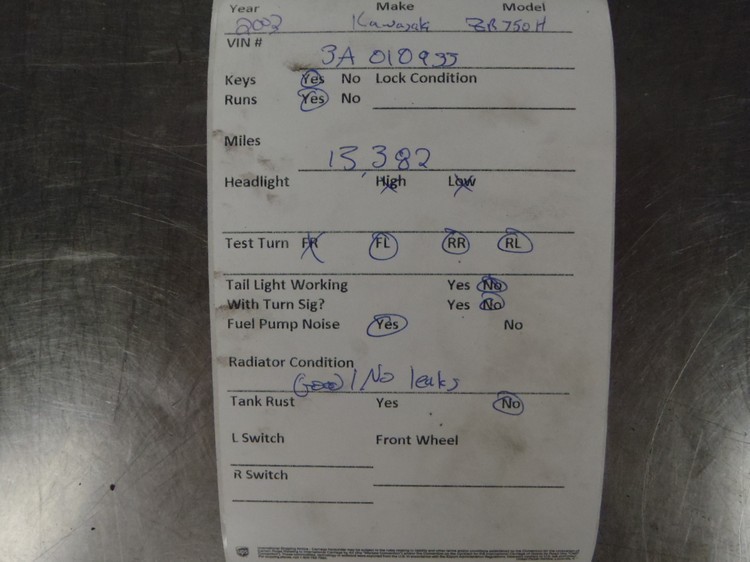 Year Make Model
2003 Kawasaki ZR750H
VIN #
3A 010935
Keys Yes No Lock Condition
Runs Yes No
Miles
13,382
Headlight High Low
Test Turn FR FL RR RL
Tail Light Working Yes No
With Turn Sig? Yes No
Fuel Pump Noise Yes No
Radiator Condition
Good / No leaks
Tank Rust Yes No
L Switch Front Wheel
R Switch